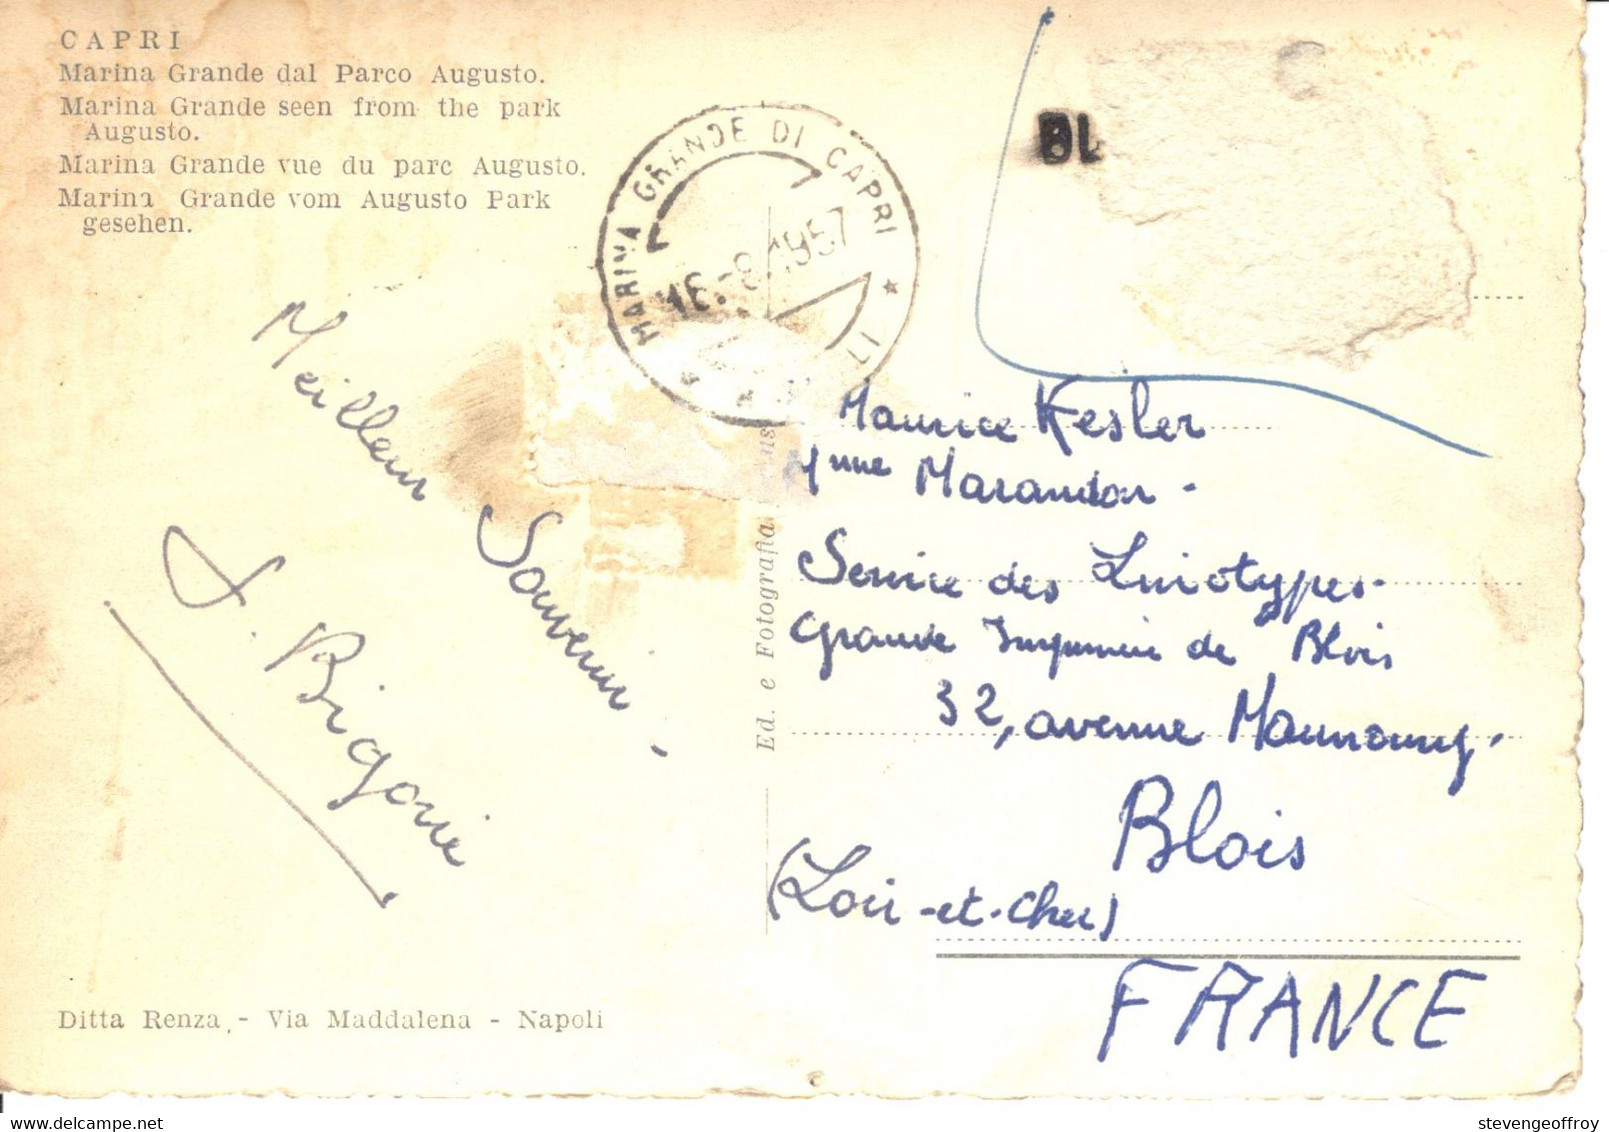 CAPRI
Marina Grande dal Parco Augusto.
Marina Grande seen from the park
Augusto.
Marina Grande vue du parc Augusto.
Marina Grande vom Augusto Park
gesehen.
MARINA GRANDE DI CAPRI
16.-8.1957
BL
Meilleur Souvenir -
Bigorie
Maurice Kesler
Marandon -
Service des Linotypes-
Grande Imprimerie de Blois
32, avenue Maunoury.
Blois
(Loir-et-Cher)
FRANCE
Ed. e Fotografia
Ditta Renza, - Via Maddalena - Napoli
delcampe.net
stevengeoffroy